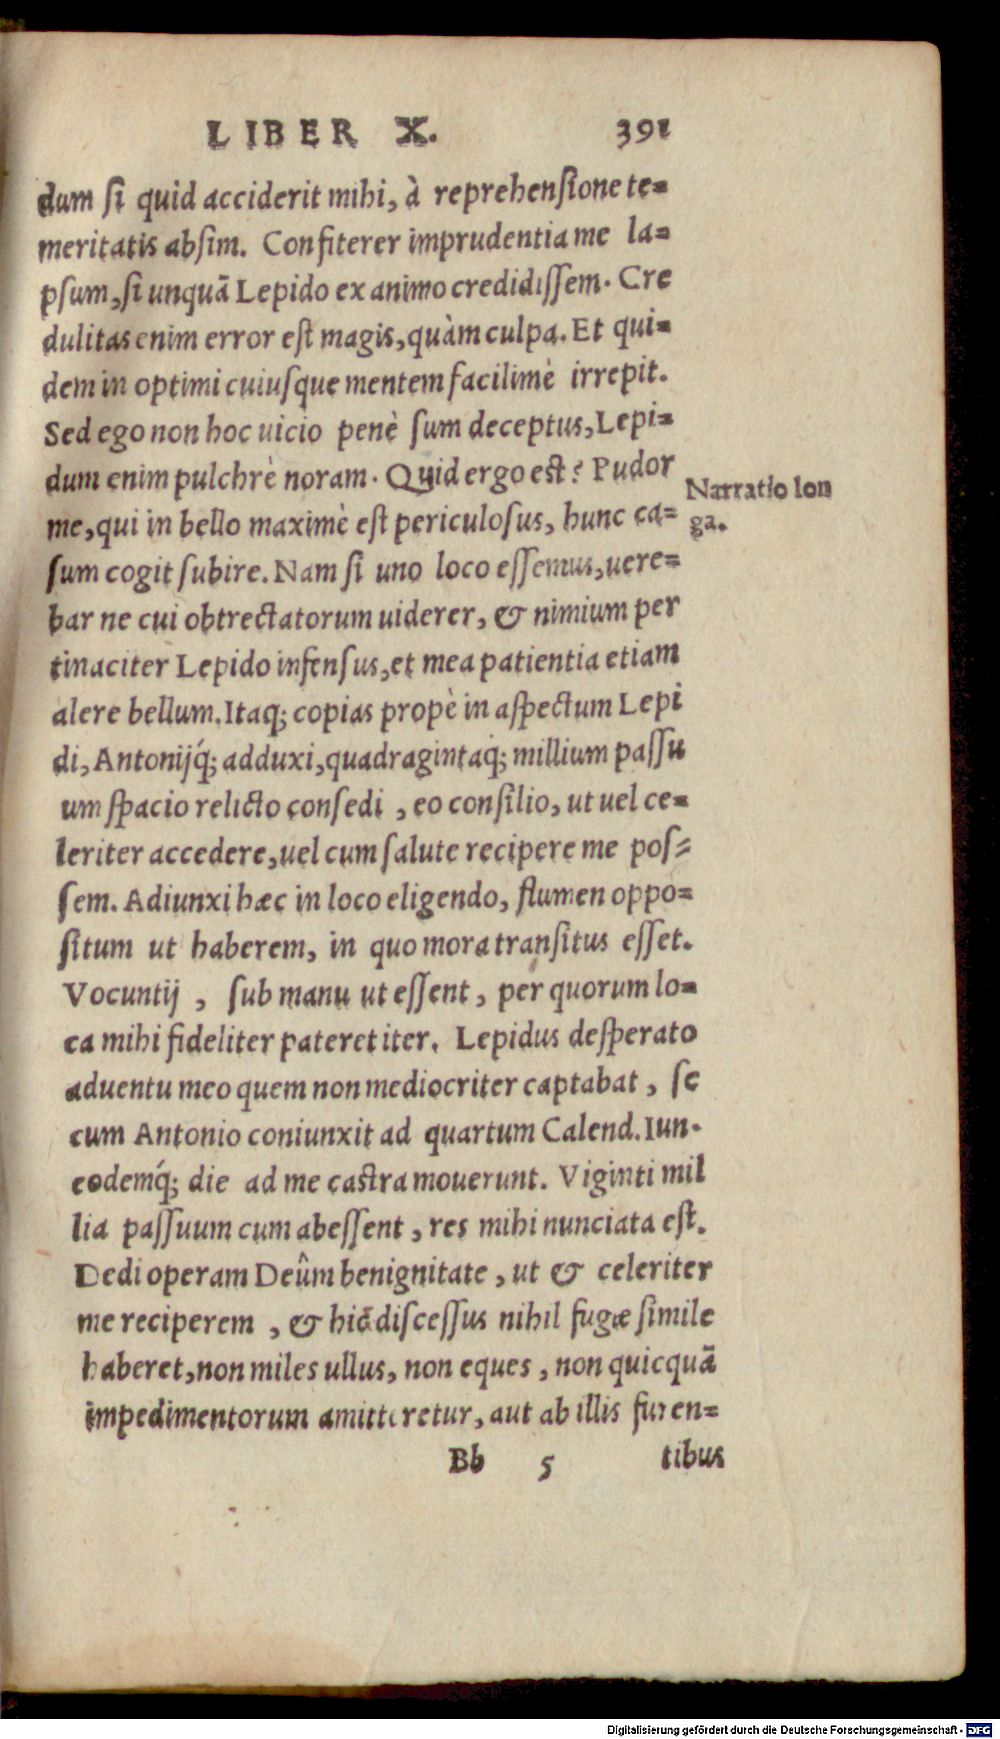 LIBER X. 391
dum si quid acciderit mihi, à reprehensione te=
meritatis absim. Confiterer imprudentia me la=
psum, si unquã Lepido ex animo credidissem. Cre
dulitas enim error est magis, quàm culpa. Et qui=
dem in optimi cuiusque mentem facilimè irrepit.
Sed ego non hoc uicio penè sum deceptus, Lepi=
dum enim pulchrè noram. Quid ergo est? Pudor
Narratio lon
me, qui in bello maximè est periculosus, hunc ca=
ga.
sum cogit subire. Nam si uno loco essemus, uere=
bar ne cui obtrectatorum uiderer, & nimium per
tinaciter Lepido infensus, et mea patientia etiam
alere bellum. Itaq; copias propè in aspectum Lepi
di, Antonijq́; adduxi, quadragintaq́; millium passu
um spacio relicto consedi , eo consilio, ut uel ce=
leriter accedere, uel cum salute recipere me pos=
sem. Adiunxi hæc in loco eligendo, flumen oppo=
situm ut haberem, in quo mora transitus esset.
Vocuntij , sub manu ut essent , per quorum lo=
ca mihi fideliter pateret iter. Lepidus desperato
aduentu meo quem non mediocriter captabat , se
cum Antonio coniunxit ad quartum Calend. Iun.
eodemq́; die ad me castra mouerunt. Viginti mil
lia passuum cum abessent , res mihi nunciata est.
Dedi operam Deûm benignitate , ut & celeriter
me reciperem , & hic discessus nihil fugæ simile
haberet, non miles ullus, non eques , non quicquã
impedimentorum amitteretur, aut ab illis furen=
Bb 5 tibus
Digitalisierung gefördert durch die Deutsche Forschungsgemeinschaft - DFG